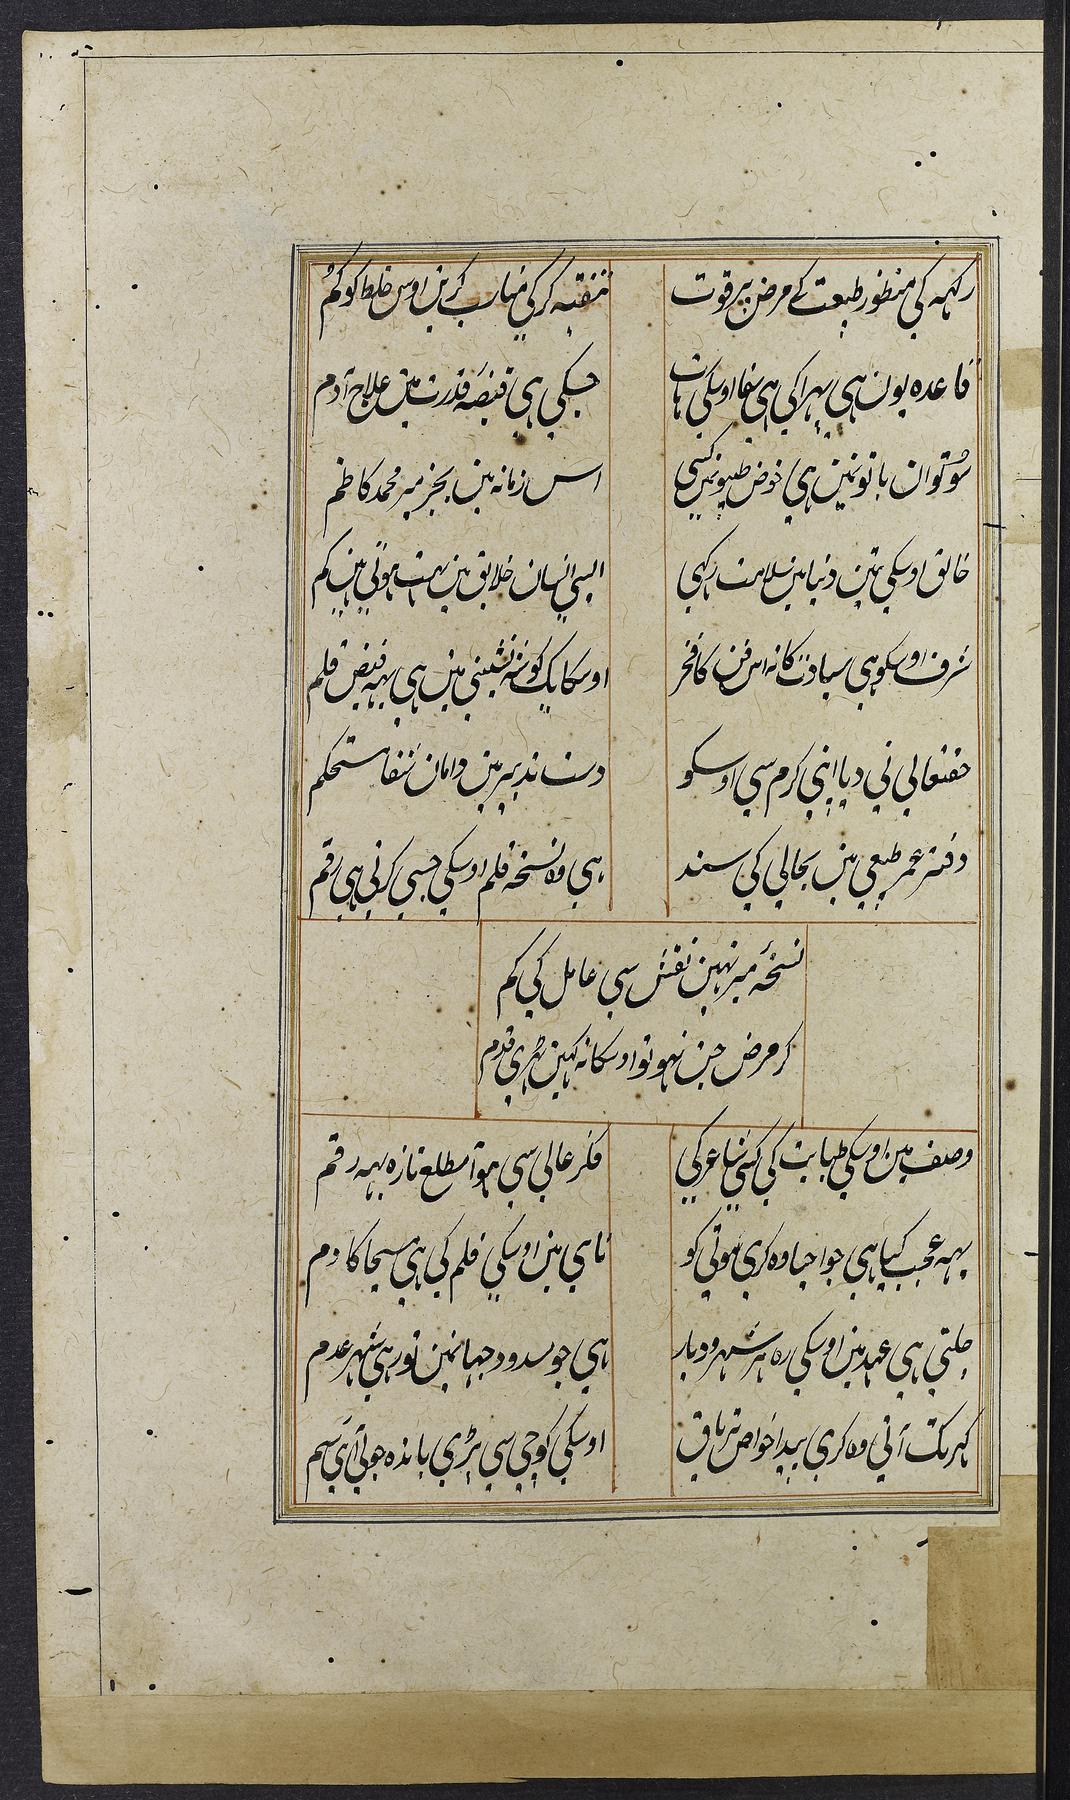 رکہہ کی منظور طبیعت کے مرض پر قوت
تنقیہ کرکی نہارب کرین اوس خلط کو کم
قاعدہ یون ہی پہر اکی ہی شفا اوسکی ہات
جسکی ہی قبضہ قدرت مین علاج آدم
سو تو ان باتونمین ہی خوض طبیبونمین کسی
اس زمانہ مین بجز میر محمد کاظم
خالق اوسکی تین دنیا مین سلامت رکہی
ایسی انسان خلایق مین بہت ہوتی ہین کم
شرف اوسکو ہی سیادت کا نہ اس فن کا فخر
اوسکا یک گوشہ نشینی مین ہی یہہ فیض قلم
حقتعالی نی دیا اپنی کرم سی اوسکو
دست تدبیر مین دامان شفا مستحکم
دفتر عمر طبیعی مین بحالی کی سند
ہی وہ نسخہ قلم اوسکی جسی کرتی ہی رقم
نسخۂ میر نہین نقش سی عامل کی کم
گر مرض جن نہو تو اوسکا نہ کہین ٹہری قدم
وصف مین اوسکی طبابت کی کسی شاعر کی
فکر عالی سی ہوا مطلع تازہ یہہ رقم
یہہ عجب کیا ہی جو احیا وہ کری موتی کو
نای مین اوسکی قلم کی ہی مسیحا کا دم
چلتی ہی عہد مین اوسکی رہ ہر شہر و دیار
ہی جو مسدود جہانمین تو رہی شہر عدم
گہر تک آنی وہ کری پیدا خواص تریاق
اوسکی کوچی سی پڑی باندہ جو لی آی سم